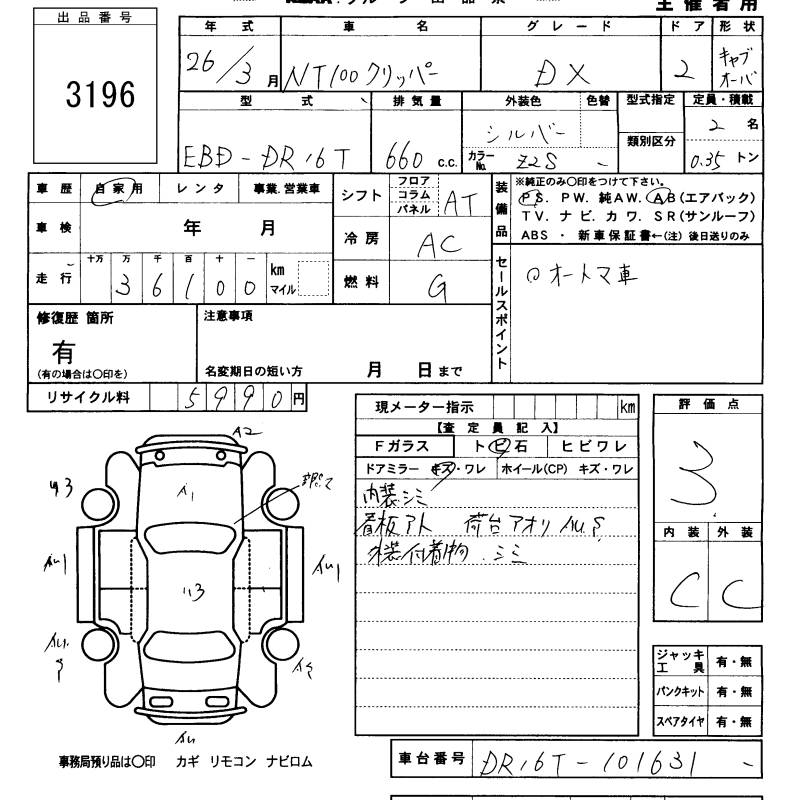 主催者用
出品番号
3196
年式 車名 グレード ドア 形状
26/3月 NT100クリッパー DX 2 キャブオーバ
型式 排気量 外装色 色替 型式指定 定員・積載
EBD-DR16T 660 c.c. シルバー 類別区分 2名
カラーNo. Z2S - 0.35トン
車歴 自家用 レンタ 事業.営業車
車検 年 月
走行 十万 万 千 百 十 一 km マイル
3 6 1 0 0
シフト フロア コラム パネル AT
冷房 AC
燃料 G
装備品
※純正のみ〇印をつけて下さい。
PS. PW. 純AW. AB(エアバック)
TV. ナビ. カワ. SR(サンルーフ)
ABS ・ 新車保証書←(注) 後日送りのみ
セールスポイント
オートマ車
修復歴 箇所
有
(有の場合は〇印を)
注意事項
名変期日の短い方 月 日まで
リサイクル料 5990円
現メーター指示 km
【査定員記入】
Fガラス トビ石 ヒビワレ
ドアミラー キズ・ワレ ホイール(CP) キズ・ワレ
内装シミ
看板アト 荷台アオリ
外装付着物 シミ
評価点
3
内装 外装
C C
A2
A1
ジャッキ工具 有・無
パンクキット 有・無
スペアタイヤ 有・無
車台番号 DR16T-101631 -
事務局預り品は〇印 カギ リモコン ナビロム